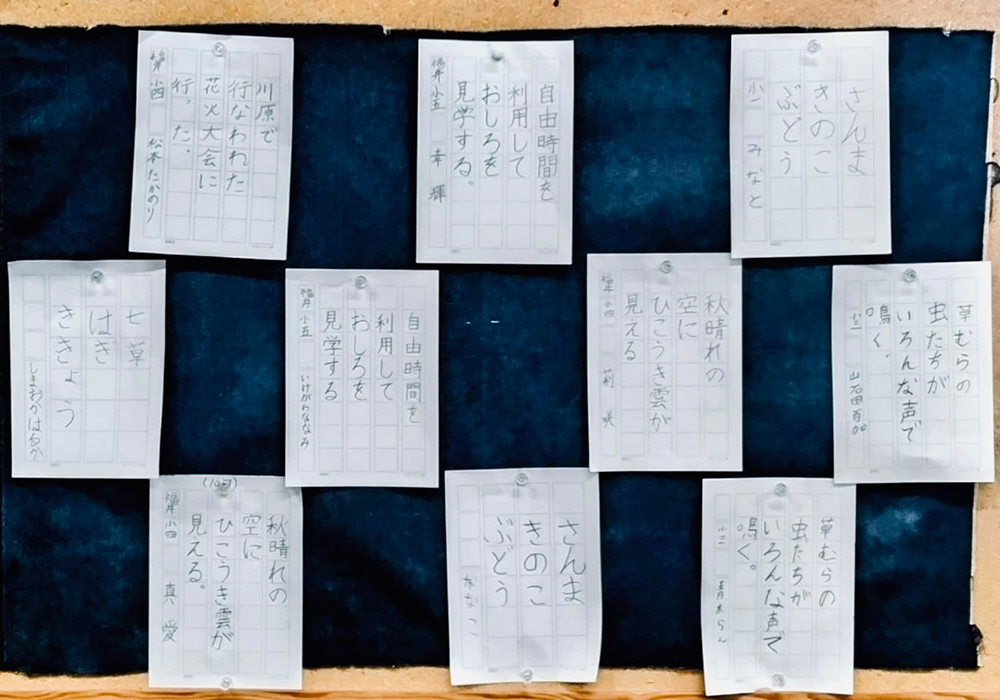 川原で
行なわれた
花火大会に
行った。
小四 松本たかのり
自由時間を
利用して
おしろを
見学する。
福井 小五 幸輝
さんま
きのこ
ぶどう
小一 みなと
七草
はぎ
ききょう
しまおかはるか
自由時間を
利用して
おしろを
見学する
福井 小五 いけがわななみ
秋晴れの
空に
ひこうき雲が
見える
福井 小四 莉咲
草むらの
虫たちが
いろんな声で
鳴く。
(10月)
秋晴れの
空に
ひこうき雲が
見える。
福井 小四 真愛
さんま
きのこ
ぶどう
草むらの
虫たちが
いろんな声で
鳴く。
小三 青木らん